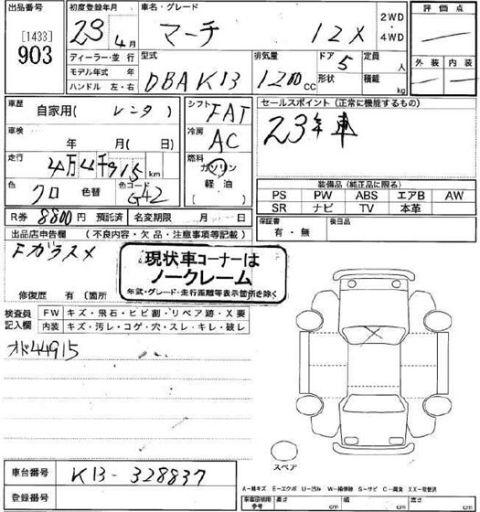 出品番号 初度登録年月 車名・グレード 2WD・4WD 評価点
[1433]
903 23年4月 マーチ 12X
ディーラー・並行 型式 排気量 ドア 定員 外装 内装
モデル年式 年 DBAK13 1200CC 5 人
ハンドル 左・右 形状 積載 kg
車歴 自家用( レンタ ) シフト FAT セールスポイント(正常に機能するもの)
車検 年 月( 日) 冷房 AC 23年車
走行 4万4千915km 燃料 ガソリン 軽油 ( )
色 クロ 色替 色コード G42
装備品(純正品に限る)
PS PW ABS エアB AW
SR ナビ TV 本革
R券 8800円 預託済 名変期限 月 日
保証書 有・無 後日品
出品店申告欄 (不良内容・欠品・注意事項等記載)
Fガラスメ
現状車コーナーは
ノークレーム
年式・グレード・走行距離等表示箇所を除く
修復歴 有(箇所
検査員記入欄 FW キズ・飛石・ヒビ割・リペア跡・X要
内装 キズ・汚レ・コゲ・穴・スレ・キレ・破レ
オド44915
スペア
車台番号 K13-328837
登録番号
A-線キズ E-エクボ U-凹み W-補修跡 S-サビ C-腐食 XX-交換済
参考 長さ cm 幅 cm 高さ cm